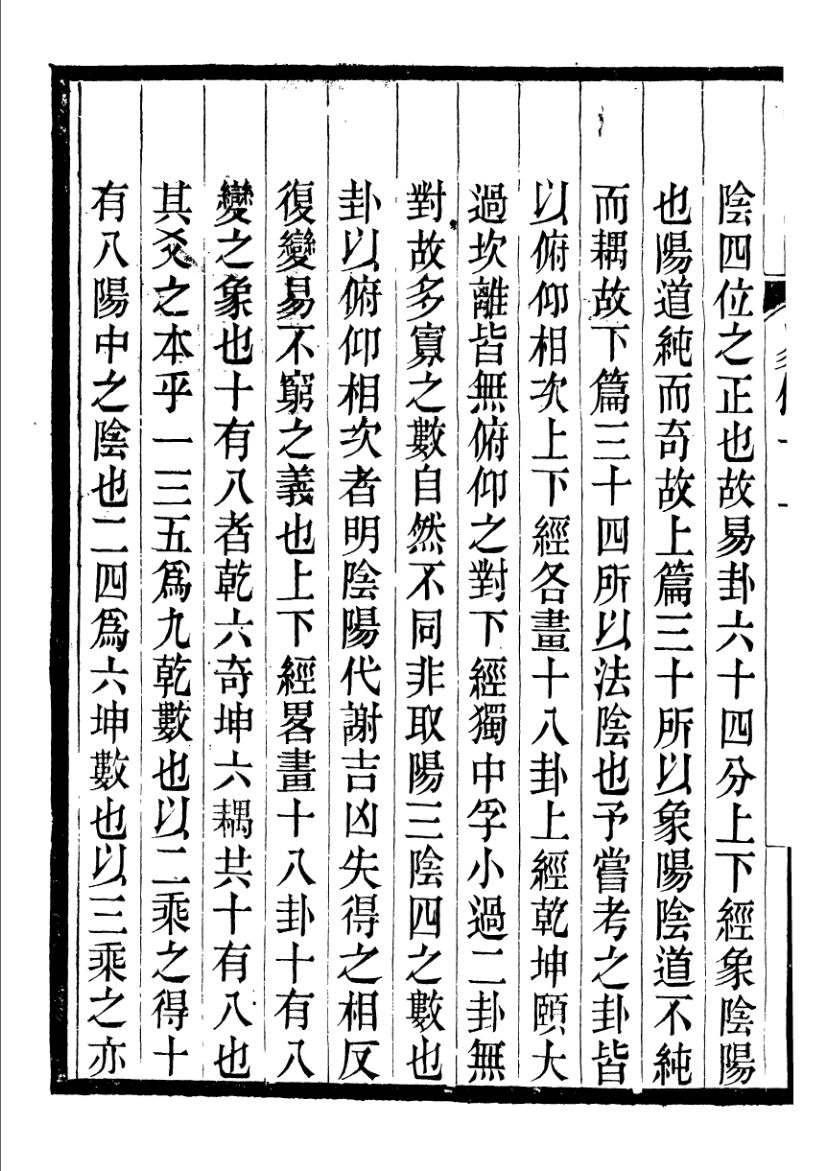 陰四位之正也故易卦六十四分上下經象陰陽
也陽道純而奇故上篇三十所以象陽陰道不純
而耦故下篇三十四所以法陰也予嘗考之卦皆
以俯仰相次上下經各畫十八卦上經乾坤頤大
過坎離皆無俯仰之對下經獨中孚小過二卦無
對故多寡之數自然不同非取陽三陰四之數也
卦以俯仰相次者明陰陽代謝吉凶失得之相反
復變易不窮之義也上下經畧畫十八卦十有八
變之象也十有八者乾六奇坤六耦共十有八也
其爻之本乎一三五爲九乾數也以二乘之得十
有八陽中之陰也二四爲六坤數也以三乘之亦